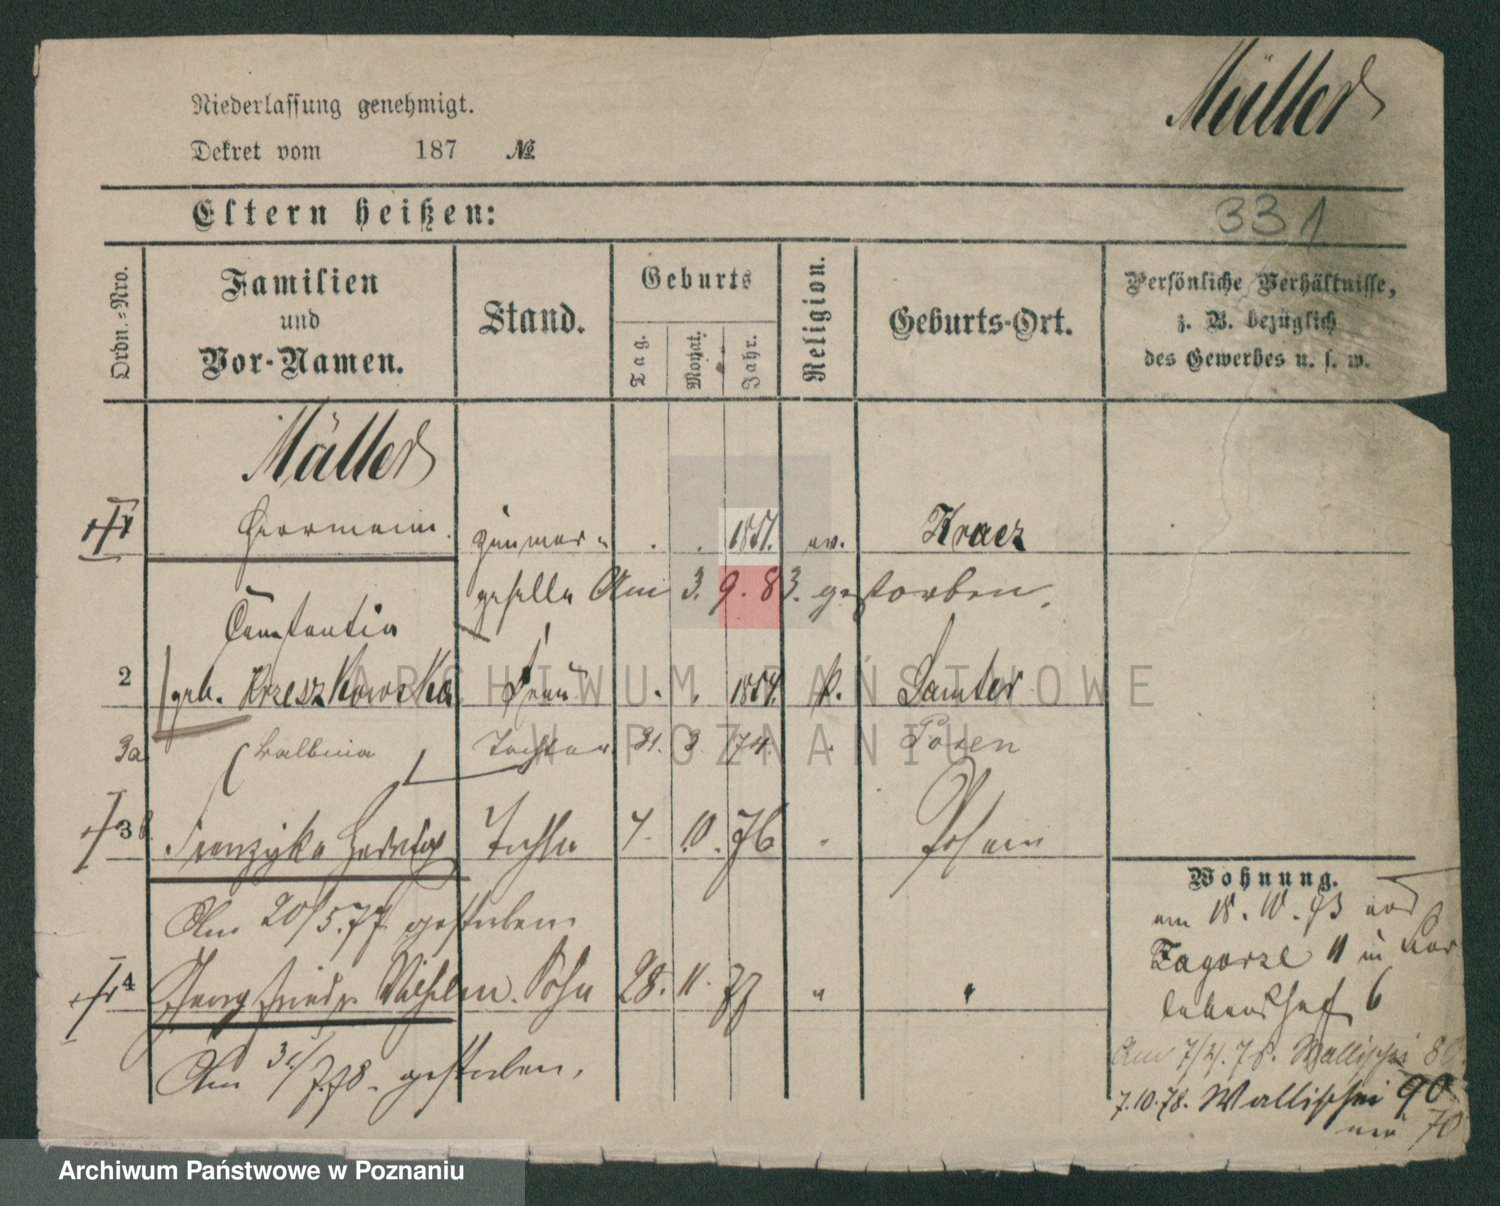 Müller
Niederlassung genehmigt.
Dekret vom 187 №
Eltern heißen:
331
Ordn.-Nro.
Familien
und
Vor-Namen.
Stand.
Geburts
Tag.
Monat.
Jahr.
Religion.
Geburts-Ort.
Persönliche Verhältnisse,
z. B. bezüglich
des Gewerbes u. s. w.
Müller
1 Herrmann Zimmer- . . 1851. ev. Kraez
geselle Am 3. 9. 83. gestorben.
Constantia
2 geb. Krzeszkowska Frau . . 1854. k. Samter
3a Balbina Tochter 31. 3. 74. Posen
3b Franziska Hedwig Tochter 7. 10. 76 " Posen
Am 20/5.77 gestorben.
4 Georg Friedr. Wilhelm. Sohn 28. 11. 77 " "
Am 31/7.78. gestorben.
Wohnung.
am 18. 10. 73 von
Zagorze 11 in
6
Am 7/4. 78. Wallischei 80.
7.10.78. Wallischei 90
neu 70
ARCHIWUM PAŃSTWOWE
W POZNANIU
Archiwum Państwowe w Poznaniu